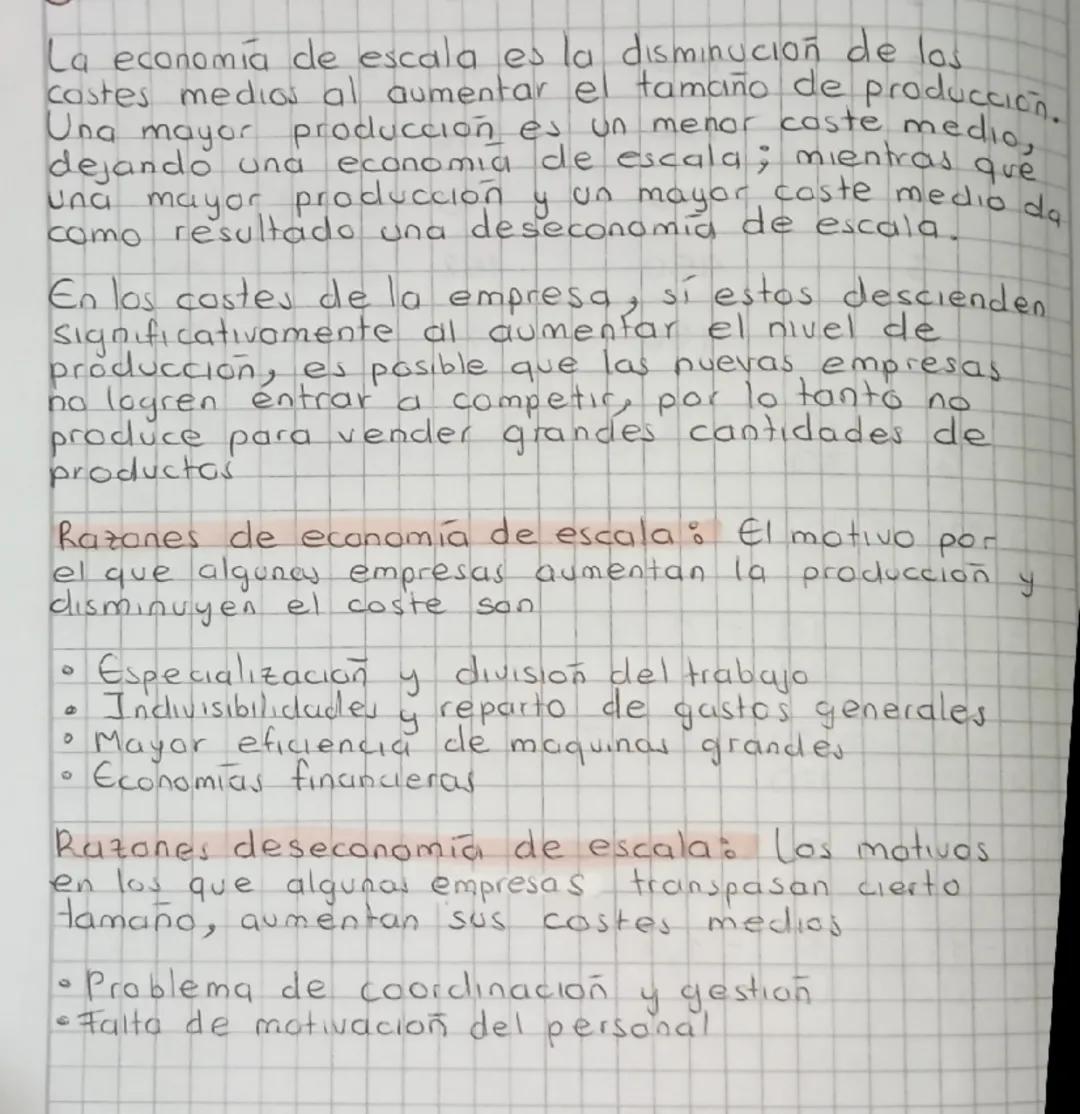 La economía de escala es la disminución de los
costes medios al aumentar el tamaño de producción.
Una mayor producción es un menor coste medio,
dejando una economía de escala; mientras que
una mayor producción y un mayor coste medio da
como resultado una deseconomía de escala.
En los costes de la empresa, si estos descienden
significativamente al aumentar el nivel de
producción, es posible que las nuevas empresas
no logren entrar a competir, por lo tanto no
produce para vender grandes cantidades de
productos
Razones de economía de escala: El motivo por
el que algunas empresas aumentan la producción y
disminuyen el coste son
• Especialización y división del trabajo
• Indivisibilidades y reparto de gastos generales
• Mayor eficiencia de maquinas grandes
• Economías financieras
Razones deseconomía de escala: Los motivos
en los que algunas empresas transpasan cierto
tamaño, aumentan sus costes medios
• Problema de coordinación y gestión
• Falta de motivación del personal